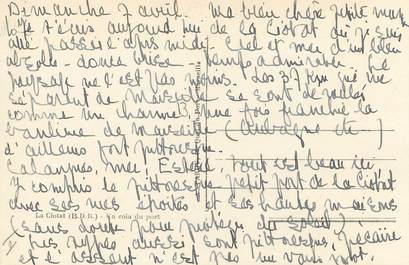 Dimanche 7 avril. Ma bien chère petite
Je t'écris aujourd'hui de La Ciotat où je suis
allé passer l'après midi. Ciel et mer d'un bleu
absolu - douce brise - temps admirable. Le
paysage ne l'est pas moins. Les 37 km qui me
séparent de Marseille se sont
comme un charme, une fois franchie la
banlieue de Marseille (Aubagne etc.)
d'ailleurs fort pittoresque.
Calanques, mer, Esterel, tout est beau ici
y compris le pittoresque petit port de La Ciotat
avec ses rues étroites et ses hautes maisons
La Ciotat (B.D.R.) - Un coin du port
(sans doute pour protéger du soleil)
types aussi sont pittoresques,
et l'accent n'est pas un vain mot.